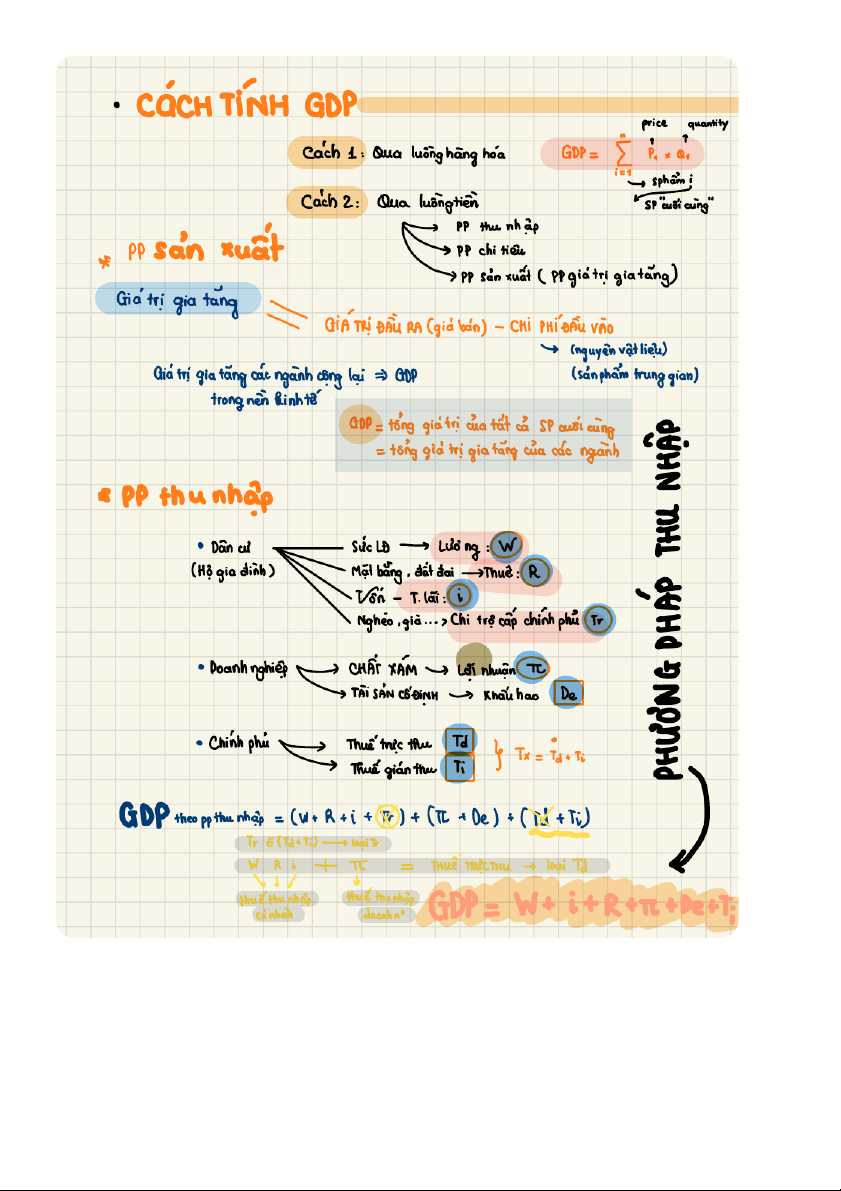 • CÁCH TÍNH GDP
price quantity
Cách 1: Qua luồng hàng hóa GDP = n ∑ i=1 Pi × Qi
→ sphẩm i
SP "cuối cùng"
Cách 2: Qua luồng tiền
PP thu nhập
PP chi tiêu
PP sản xuất ( PP giá trị gia tăng)
* PP sản xuất
Giá trị gia tăng
GIÁ TRỊ ĐẦU RA (giá bán) – CHI PHÍ ĐẦU VÀO
→ (nguyên vật liệu)
(sản phẩm trung gian)
Giá trị gia tăng các ngành cộng lại ⇒ GDP
trong nền kinh tế
GDP = tổng giá trị của tất cả SP cuối cùng
= tổng giá trị gia tăng của các ngành
* PP thu nhập
PHƯƠNG PHÁP THU NHẬP
• Dân cư
(Hộ gia đình)
Sức LĐ → Lương : W
Mặt bằng, đất đai → Thuê : R
Vốn – T. lãi : i
Nghèo, già ...→ Chi trợ cấp chính phủ Tr
• Doanh nghiệp → CHẤT XÁM → Lợi nhuận π
TÀI SẢN CỐ ĐỊNH → Khấu hao De
• Chính phủ → Thuế trực thu Td
Thuế gián thu Ti
} Tx = Td + Ti
GDP theo pp thu nhập = (W + R + i + Tr) + (π + De) + (Td + Ti)
Tr ∈ (Td+Ti) → loại Tr
W R i + π = THUẾ TRỰC THU → loại Td
thuế thu nhập
cá nhân
thuế thu nhập
doanh n*
GDP = W + i + R + π + De + Ti